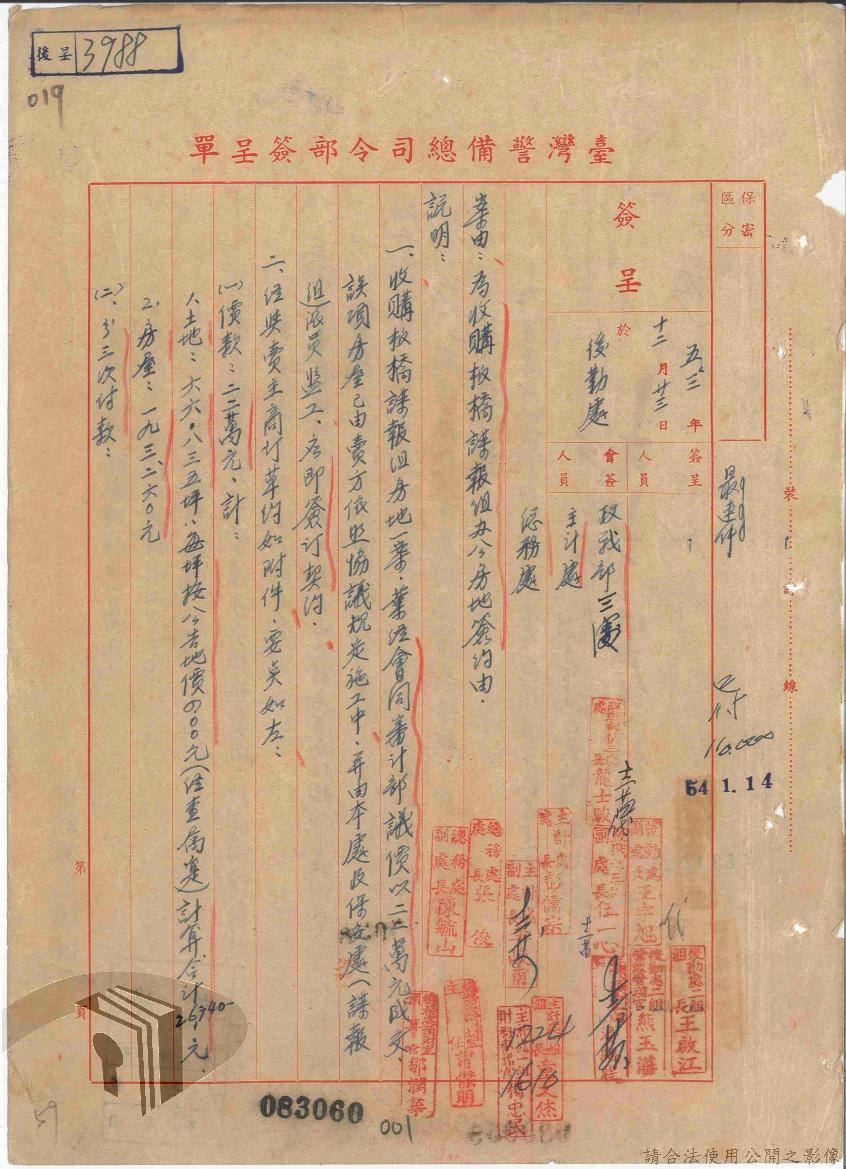 後呈 3988
019
臺灣警備總司令部簽呈單
保密區分
簽呈
五三年十二月廿三日
於後勤處
簽呈人員
會簽人員
政戰部三處
主計處
總務處
最速件
裝
線
54.1.14
案由:為收購板橋諜報組辦公房地簽約由.
説明:
一、收購板橋諜報組房地一案.業經會同審計部議價以二二萬元成交.
該項房屋已由賣方依照協議規定施工中,並由本處及保安處(諜報
組派員監工、應即簽訂契約.
二、經與賣主商訂草約如附件.要点如左:
(一)價款:二二萬元、計:
1.土地:六六.八三五坪,每坪按公告地價四00元(經查屬實)計算合計26740-元.
2.房屋:一九三二六0元
(二)、分三次付款:
後勤處二組組長王啟江
後勤處二組
熊玉藩
處長龍士
副處長伍一心
主計處
總務處處長張俊
總務處副處長陳毓山
鄒潤華
第
頁
083060
001
59
請合法使用公開之影像